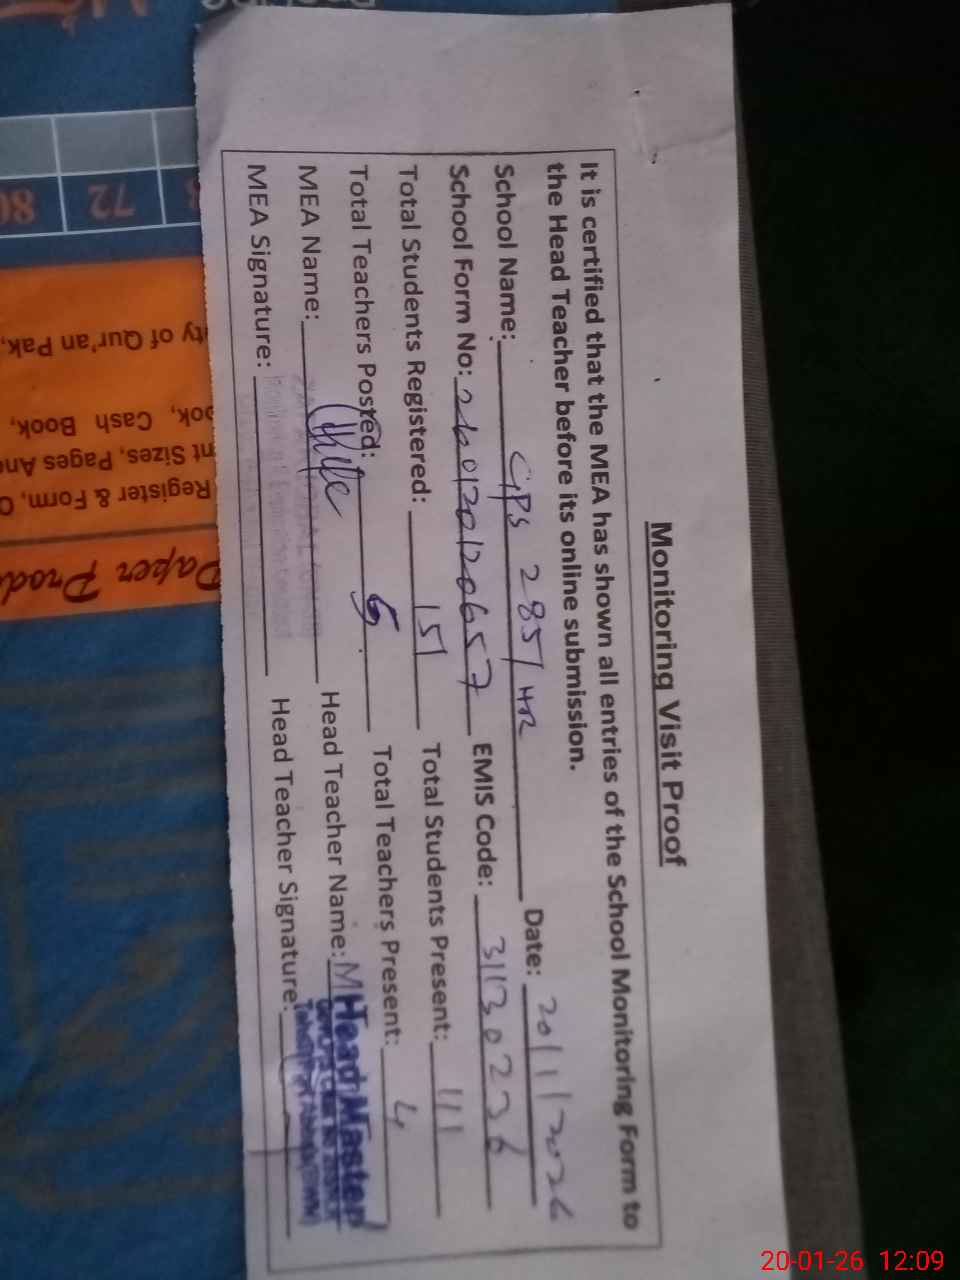 Monitoring Visit Proof
It is certified that the MEA has shown all entries of the School Monitoring Form to
the Head Teacher before its online submission.
School Name: GPS 285/HR Date: 20/1/2026
School Form No: 260120120657 EMIS Code: 31130236
Total Students Registered: 151 Total Students Present: 111
Total Teachers Posted: 5 Total Teachers Present: 4
MEA Name: Head Teacher Name: Head Master
MEA Signature: Head Teacher Signature:
72
80
ty of Qur'an Pak,
ook, Cash Book,
nt Sizes, Pages An
Register & Form,
Paper Prod
20-01-26 12:09